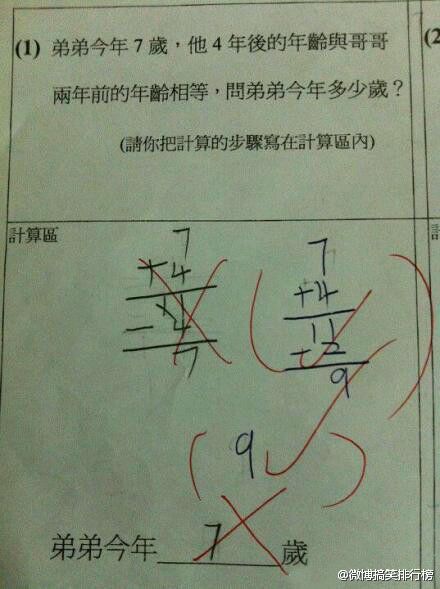 (1) 弟弟今年 7 歲，他 4 年後的年齡與哥哥
兩年前的年齡相等，問弟弟今年多少歲？
(請你把計算的步驟寫在計算區內)
(2
計算區
7
+4
11
- 4
7
7
+4
11
- 2
9
( 9 ✓ )
弟弟今年 7 歲
@微博搞笑排行榜